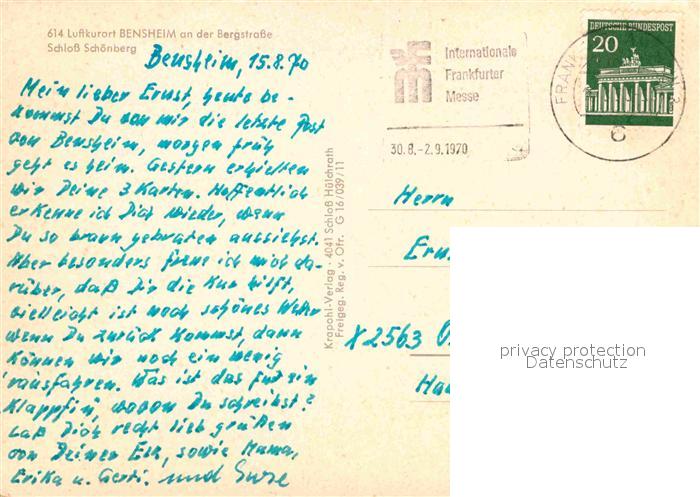 614 Luftkurort BENSHEIM an der Bergstraße
Schloß Schönberg
Bensheim, 15.8.70
Mein lieber Ernst, heute be-
kommst Du von mir die letzte Post
von Bensheim, morgen früh
geht es heim. Gestern erhielten
wir Deine 3 Karten. Hoffentlich
erkenne ich Dich wieder, wenn
Du so braun gebraten aussiehst.
Aber besonders freue ich mich da-
rüber, daß Dir die Kur hilft,
vielleicht ist noch schönes Wetter
wenn Du zurück kommst, dann
können wir noch ein wenig
rausfahren. Was ist das für ein
wovon Du schreibst?
Laß Dich recht lieb grüßen
von Deinen sowie Mama,
Erika u. Gerti. und
Krapohl-Verlag · 4041 Schloß Hülchrath
Freigeg. Reg. v. Ofr. G 16/039/11
Internationale
Frankfurter
Messe
30.8.-2.9.1970
DEUTSCHE BUNDESPOST
20
FRANK
6
Herrn
X 2563
privacy protection
Datenschutz